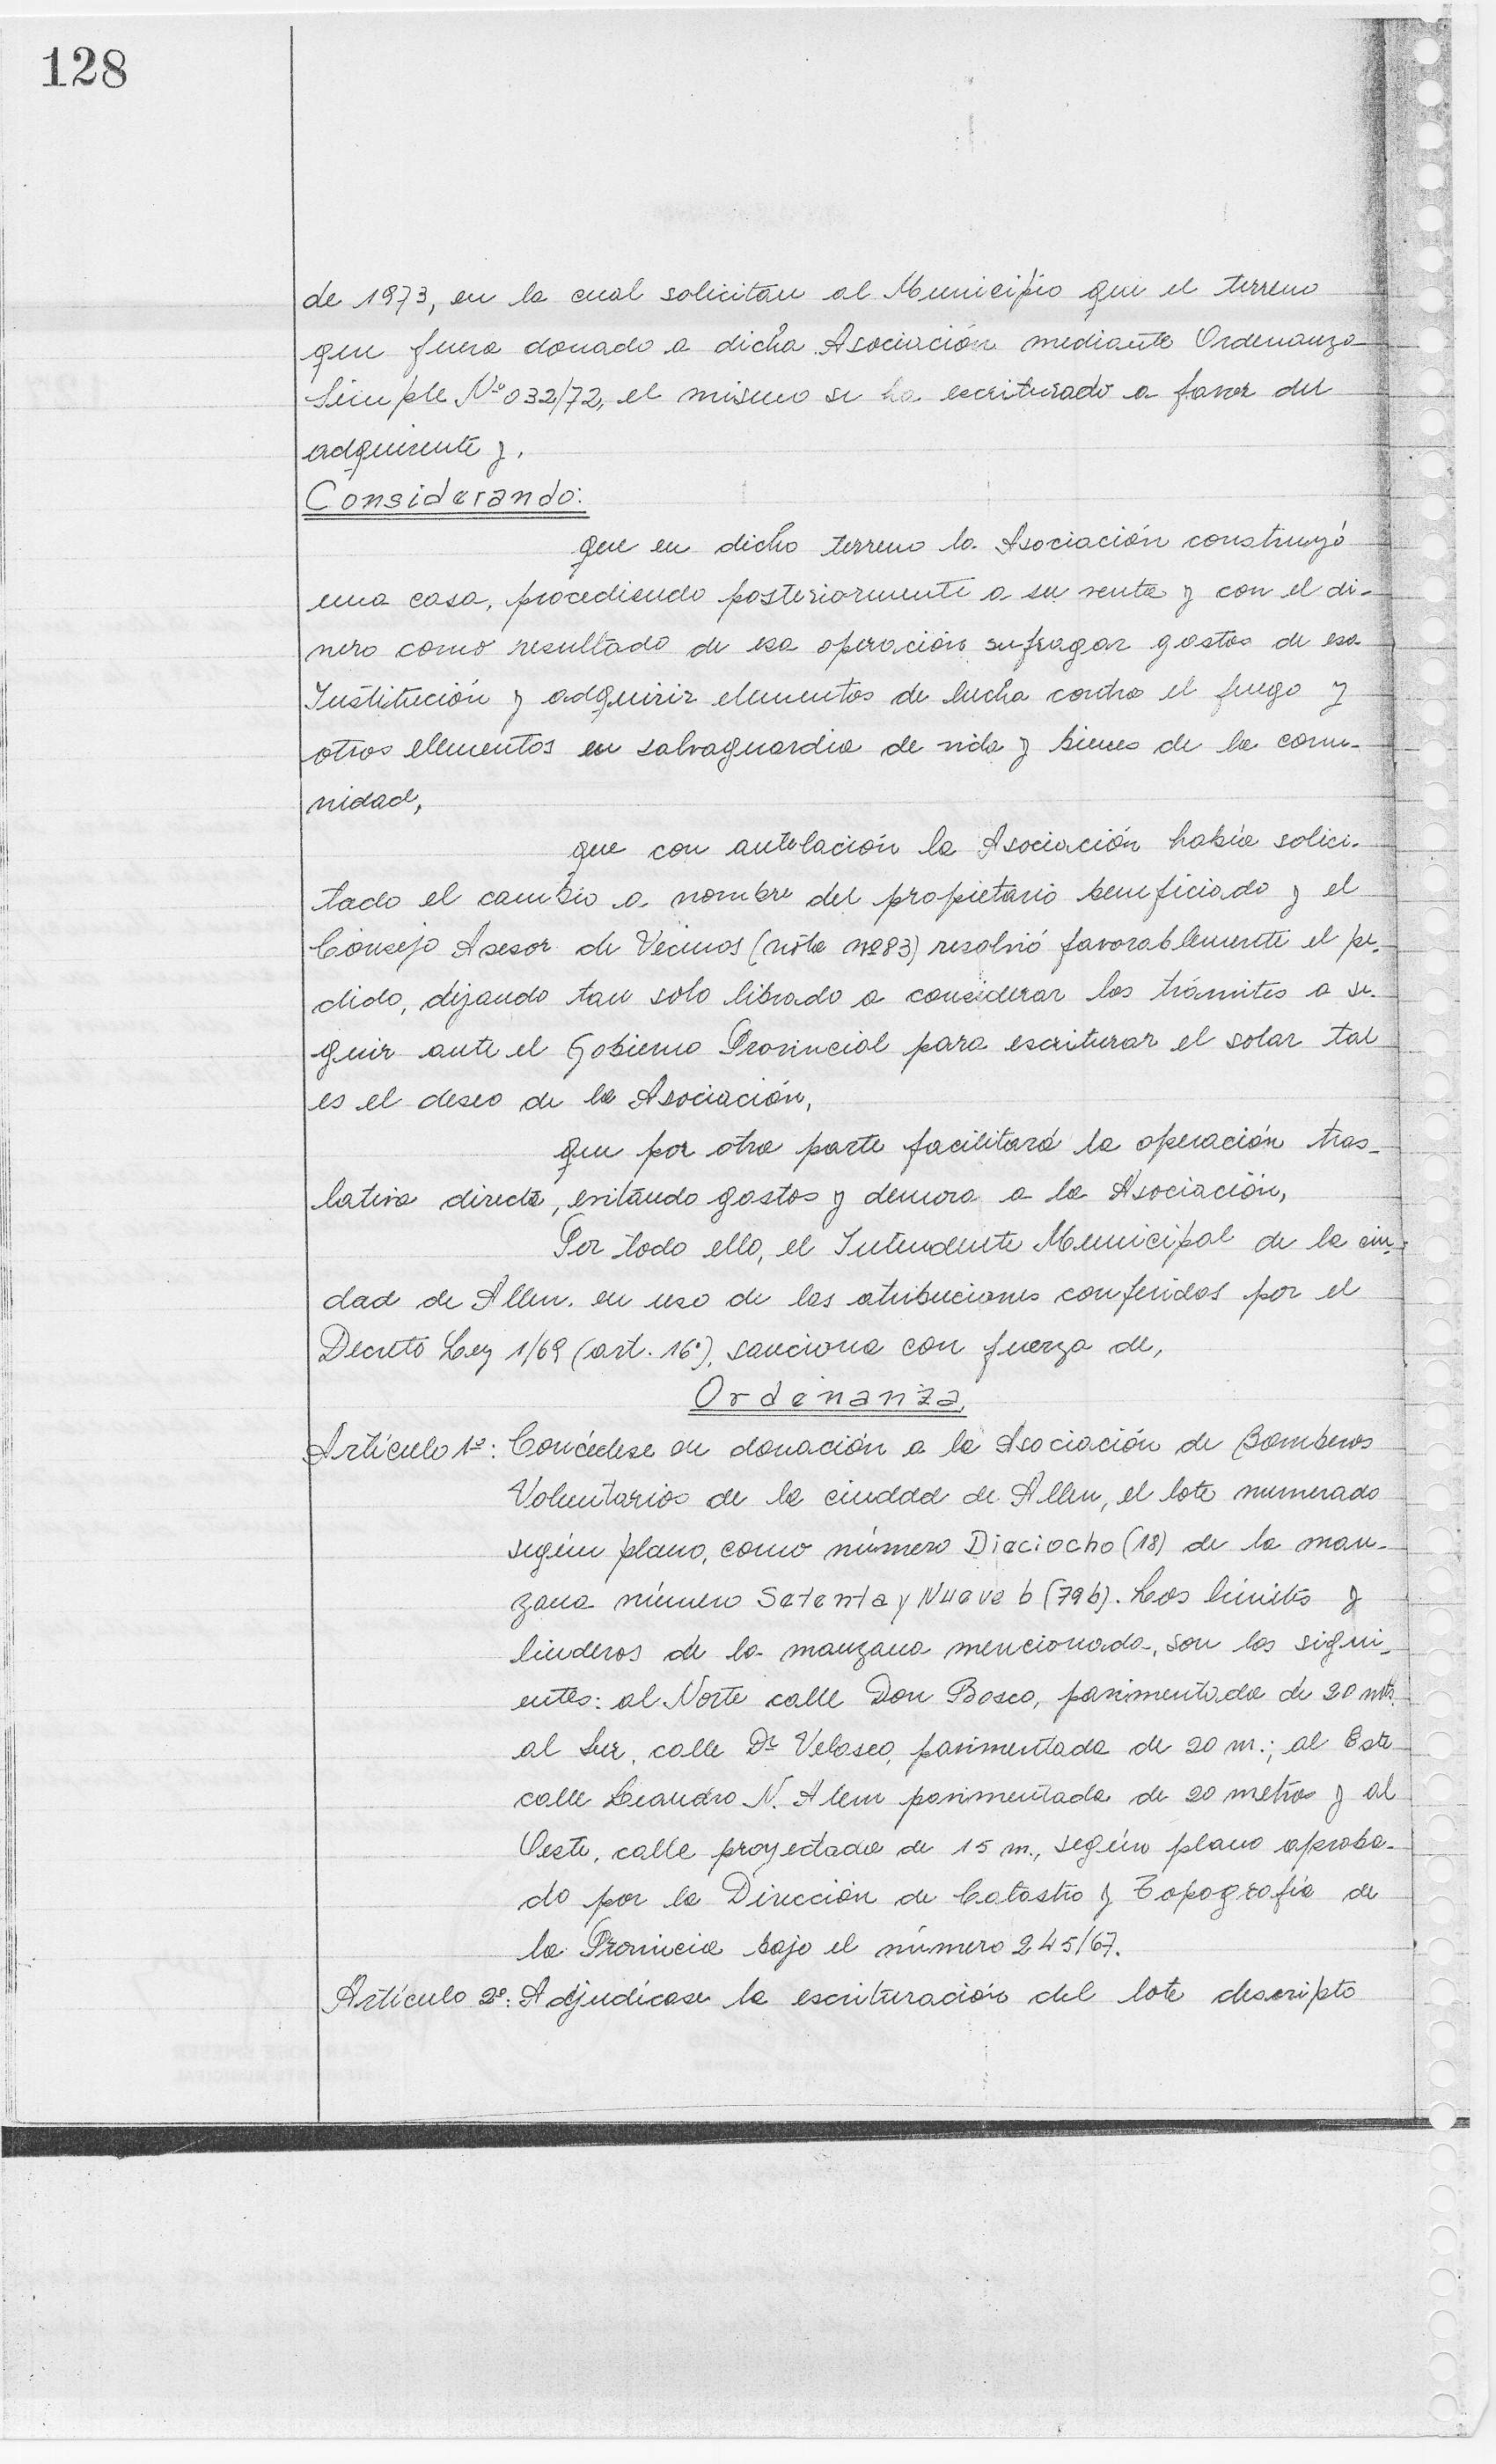 128
de 1973, en la cual solicitan al Municipio que el terreno
que fuera donado a dicha Asociación mediante Ordenanza
Simple Nº 032/72, el mismo se ha escriturado a favor del
adquirente y.
Considerando:
que en dicho terreno la Asociación construyó
una casa, procediendo posteriormente a su venta y con el di-
nero como resultado de esa operación sufragar gastos de esa
Institución y adquirir elementos de lucha contra el fuego y
otros elementos en salvaguardia de vida y bienes de la comu-
nidad,
que con antelación la Asociación había solici-
tado el cambio a nombre del propietario beneficiado y el
Consejo Asesor de Vecinos (nota nº 83) resolvió favorablemente el pe-
dido, dejando tan solo librado a considerar los trámites a se-
guir ante el Gobierno Provincial para escriturar el solar tal
es el deseo de la Asociación,
que por otra parte facilitará la operación tras-
lativa directa, evitando gastos y demora a la Asociación,
Por todo ello, el Intendente Municipal de la ciu-
dad de Allen. en uso de las atribuciones conferidas por el
Decreto Ley 1/69 (art. 16º), sanciona con fuerza de,
Ordenanza,
Artículo 1º: Concédese en donación a la Asociación de Bomberos
Voluntarios de la ciudad de Allen, el lote numerado
según plano, como número Dieciocho (18) de la man-
zana número Setenta y Nueve b (79 b). Los límites y
linderos de la manzana mencionada, son los sigui-
entes: al Norte calle Don Bosco, pavimentada de 20 mts.
al Sur, calle Dr Velasco, pavimentada de 20 m.; al Este
calle Leandro N. Alem pavimentada de 20 metros y al
Oeste, calle proyectada de 15 m., según plano aproba-
do por la Dirección de Catastro y Topografía de
la Provincia bajo el número 245/67.
Artículo 2º: Adjudícase la escrituración del lote descripto